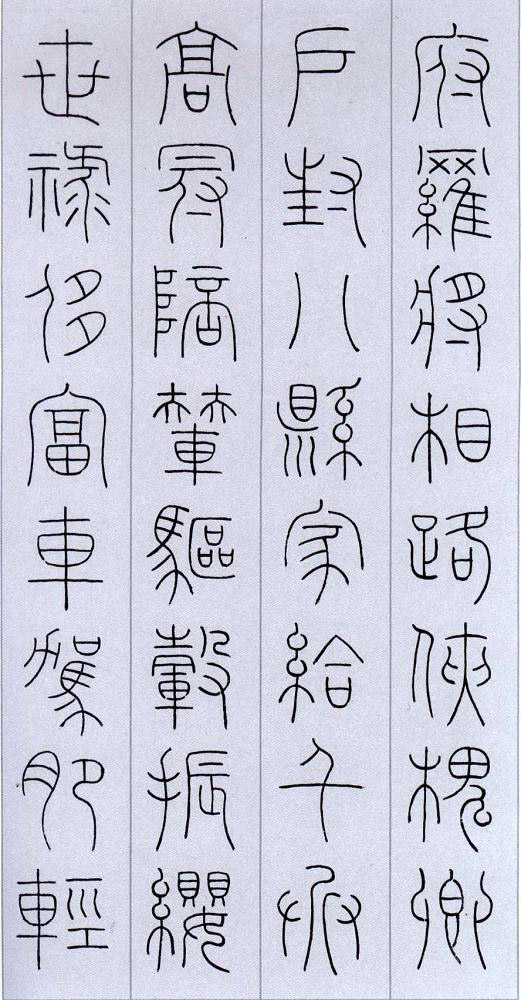 府羅將相路俠槐卿
戶封八縣家給千兵
高冠陪輦驅轂振纓
世祿侈富車駕肥輕